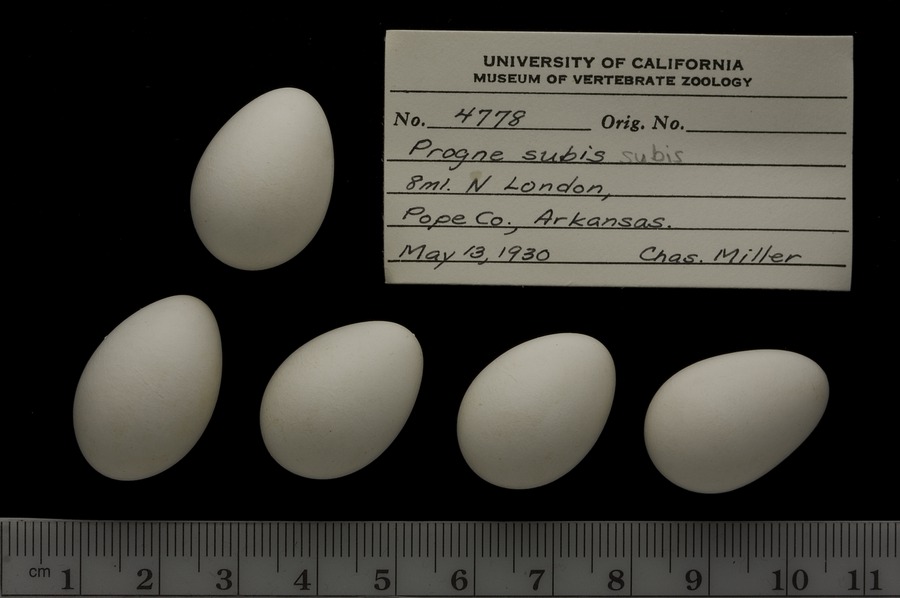 UNIVERSITY OF CALIFORNIA
MUSEUM OF VERTEBRATE ZOOLOGY
No. 4778 Orig. No.
Progne subis subis
8mi. N London,
Pope Co., Arkansas.
May 13, 1930 Chas. Miller
cm 1 2 3 4 5 6 7 8 9 10 11